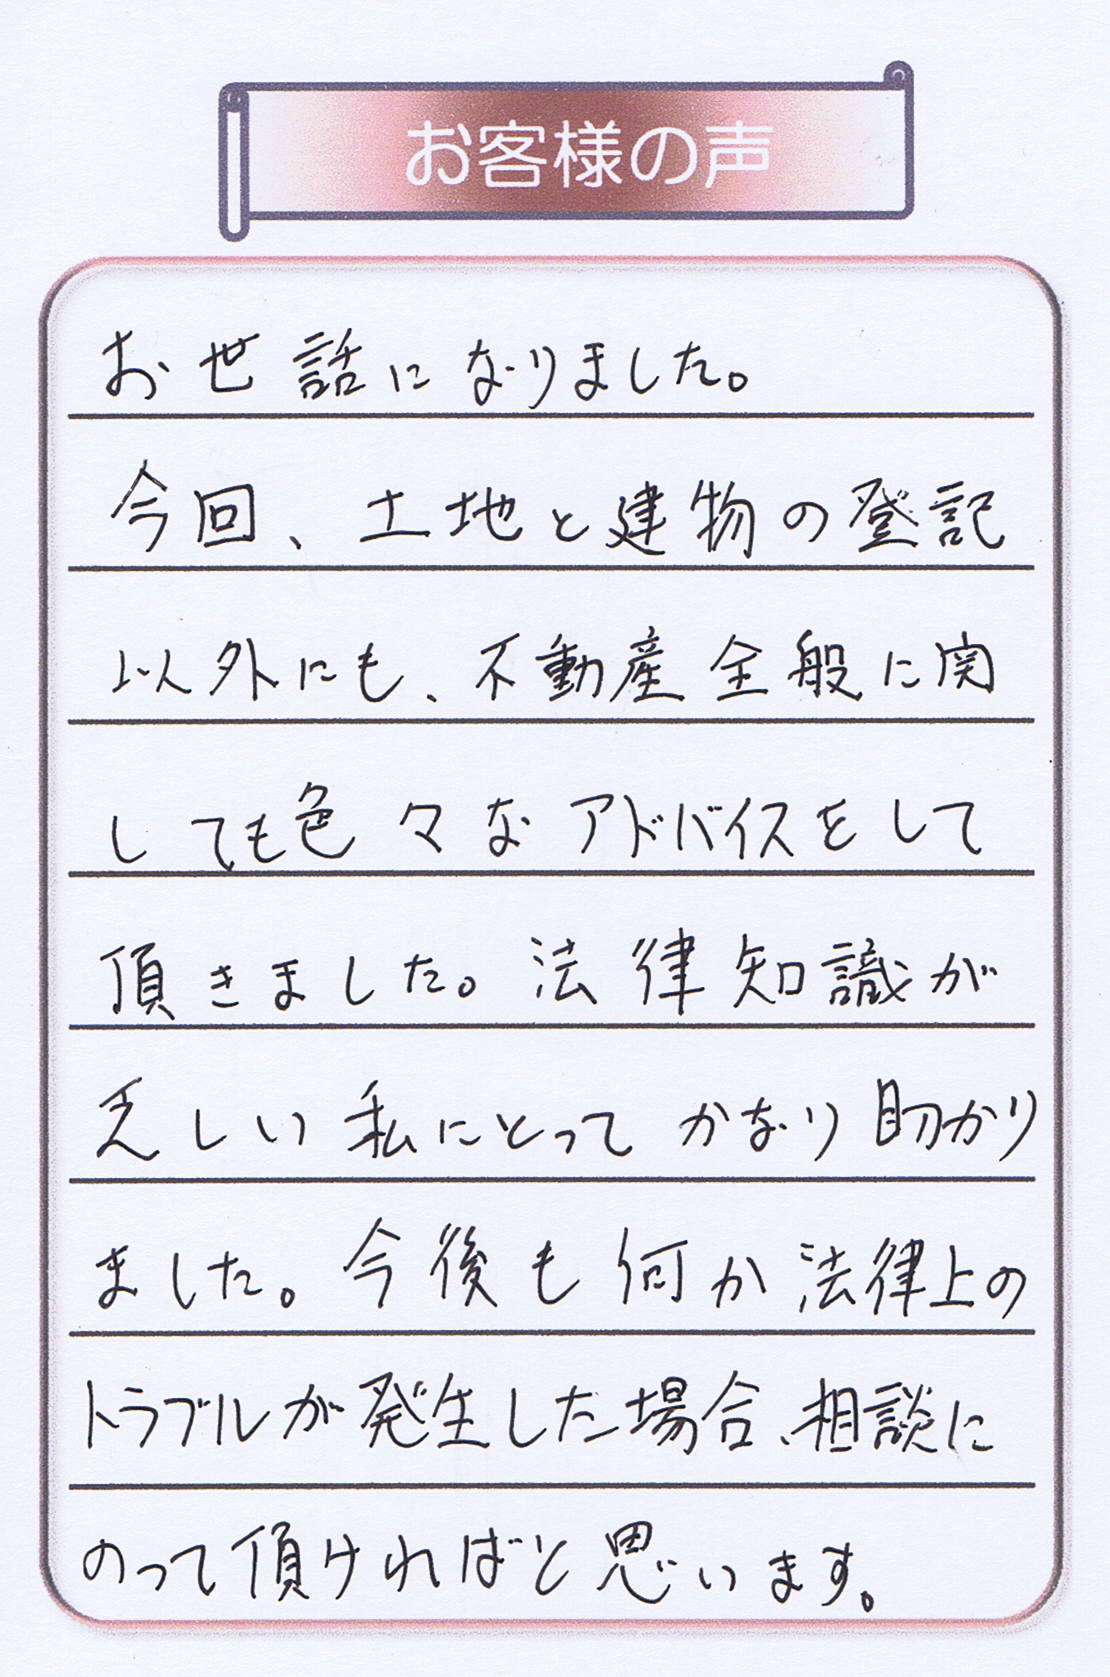 お客様の声
お世話になりました。
今回、土地と建物の登記
以外にも、不動産全般に関
しても色々なアドバイスをして
頂きました。法律知識が
乏しい私にとってかなり助かり
ました。今後も何か法律上の
トラブルが発生した場合、相談に
のって頂ければと思います。